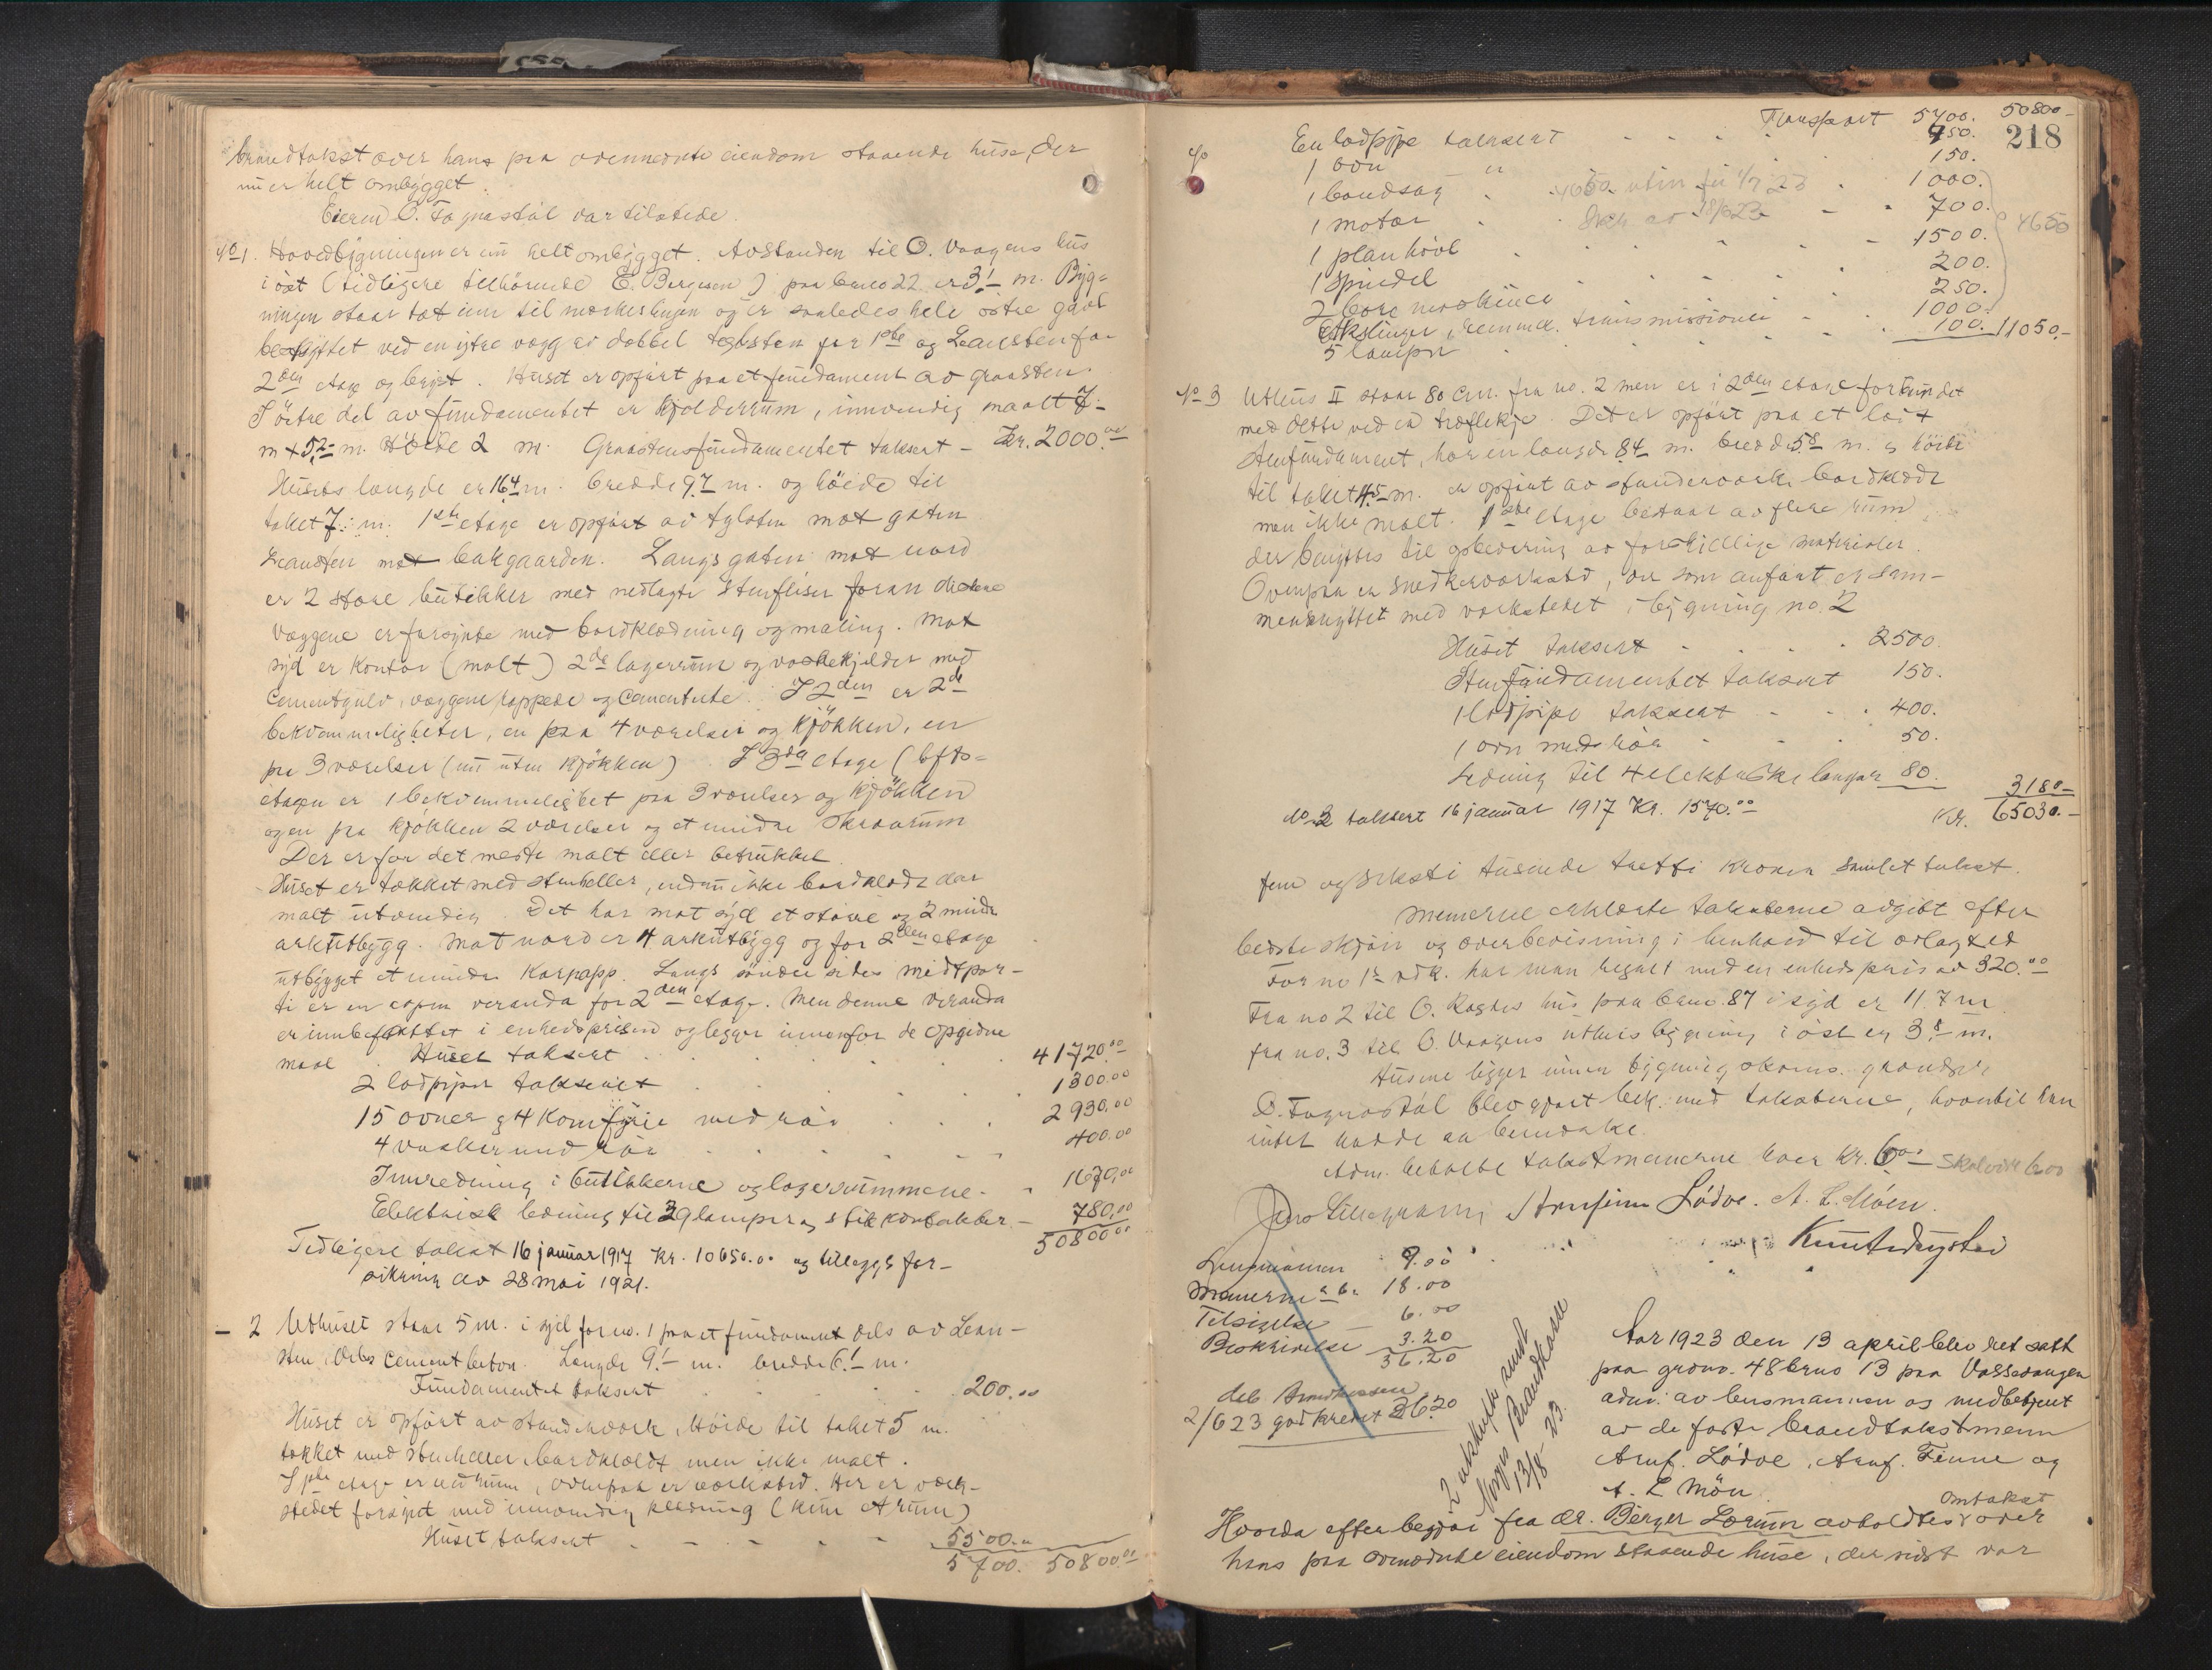 brandtakst over hans paa ovennevnte eiendom staaende huse, der
nu er helt ombygget.
Eieren O. Fagnastøl var tilstede.
No 1. Hovedbygningen er nu helt ombygget. Avstanden til O. Vaagens hus
i øst (tidligere tilhørende E. Bergesen) paa bruno 22 er 3,1 m. Byg-
ningen staar tæt inn til merkeslinjen og er saaledes hele østre gavl
beskyttet ved en ytre vegg av dobbel teglsten for 1ste og Leansten for
2den etage og bryst. Huset er opført paa et fundament av graasten.
I østre del av fundamentet er kjelderrum, innvendig maalt 7,-
m x 5,2 m. Høide 2 m. Graastensfundamentet taksert - Kr. 2000.00
Husets længde er 16,4 m. bredde 9,7 m. og høide til
taket 7,- m. 1ste etage er opført av tglsten mot gaten
Leansten mot bakgaarden. Langs gaten mot nord
er 2 store butikker med nedlagte stenfliser foran disse
Væggene er forsynte med bordklædning og maling. Mot
syd er kontor (malt) 2de lagerrum og vaskekjelder med
cementgulv, væggene rappede og cementerte. I 2den er 2de
bekvemmeligheter, en paa 4 værelser og kjøkken, en
paa 3 værelser (nu uten kjøkken). I 3die etage (lofts-
etagen er 1 bekvemmelighet paa 3 værelser og kjøkken
og en paa kjøkken 2 værelser og et mindre skraarum
Der er for det meste malt eller betrukket.
Huset er tækket med stenheller, endnu ikke bordklædt eller
malt utvendig. Det har mot syd et større og 2 mindre
arkutbygg. Mot nord er 4 arkutbygg og for 2den etage
utbygget et mindre Karnapp. Langs søndre sides midtpar-
ti er en aapen veranda for 2den etage. Men denne veranda
er innbefattet i enhedsprisen og ligger innenfor de opgivne
maal. Huset taksert 41720.00
2 ladpiper taksert 1300.00
15 ovner og 4 komfyrer med rør 2930.00
4 vasker med rør 400.00
Innredning i butikkerne og lagerrummene 1670.00
Elektrisk ledning til 39 lamper og stikkontakter - 780.00
50800.00
Tidligere takst 16 januar 1917 Kr. 10650.00 og tilleggsfor-
sikring av 28 mai 1921.
- 2 Uthuset staar 5 m. i syd for no. 1 paa et fundament dels av Lean-
sten, dels cementbeton. Længde 9,1 m. bredde 6,1 m.
Fundamentet taksert 200.00
Huset er opført av stenderverk. Høide til taket 5 m.
tækket med stenheller bordklædt men ikke malt.
I 1ste etage er ett rum, ovenpaa er verksted. Her er verk-
stedet forsynt med innvendig klædning (kun et rum)
Huset taksert - - - - 5500.00
5700. 50800.00
218
Transport 5700. 50800-
En ladpipe taksert - - - 450.
1 ovn " 150.
1 bandsag 1000.
1 motor 700.
1 planhøvl 1500.
1 spindel 200.
2 bore maskiner 250.
Akslinger, remmer, transmissioner 1000.
5 lamper 100. 11050.-
4650
No 3 Uthus II staar 80 cm. fra no. 2 men er i 2den etage forbundet
med dette ved en træflekje. Det er opført paa et løst
stenfundament, har en længde 8,4 m. bredde 5,8 m. og høide
til taket 4,5 m. er opført av stenderverk, bordklædt
men ikke malt. 1ste etage bestaar av flere rum
der benyttes til opbevaring av forskjellige materialer.
Ovenpaa er snedkerverksted, der som anført er sam-
menknyttet med verkstedet i bygning no. 2
Huset taksert - - - 2500.
Stenfundamentet taksert 150.
1 ladpipe taksert - - - 400.
1 ovn med rør - - 50.
Ledning til 4 elektriske lamper 80.
3180-
No 2 taksert 16 januar 1917 Kr. 1570.00 Kr. 65030.-
fem og seksti tusinde tretti kroner samlet takst.
Mennerne erklærte taksterne avgivt efter
bedste skjøn og overbevisning i henhold til avlagt ed
For no 1 er adk. har man regnet med en enhedspris av 320.00
Fra no 2 til O. Rognes hus paa bruno. 87 i syd er 11,7 m
fra no. 3 til O. Vaagens uthusbygning i øst er 3,8 m.
Husene ligger innen bygningskomm. grændser
O. Fagnastøl blev gjort bek. med taksterne, hvortil han
intet hadde at bemerke.
Adm. betalte takstmennerne hver kr. 6.00 -
Arnfinn Lødve. A. L. Møen.
Lensmannen 9.00
Mennerne a 6.- 18.00
Tilsigelse - 6.00
Beskrivelse 3.20
36.20
2/6 23 godkrevet 36.20
2 utskrifter sendt
Norges Brandkasse
13/8 23.
Aar 1923 den 13 april blev ret satt
paa grdno. 48 bruno 13 paa Vossevangen
adm. av lensmannen og medbetjent
av de faste brandtakstmenn
Arnf. Lødve, Arnf. Finne og
A. L. Møen.
Hvorda efter begjær fra Dr. Birger Lærum avholdtes omtakst over
hans paa ovennævnte eiendom staaende huse, der sidst var